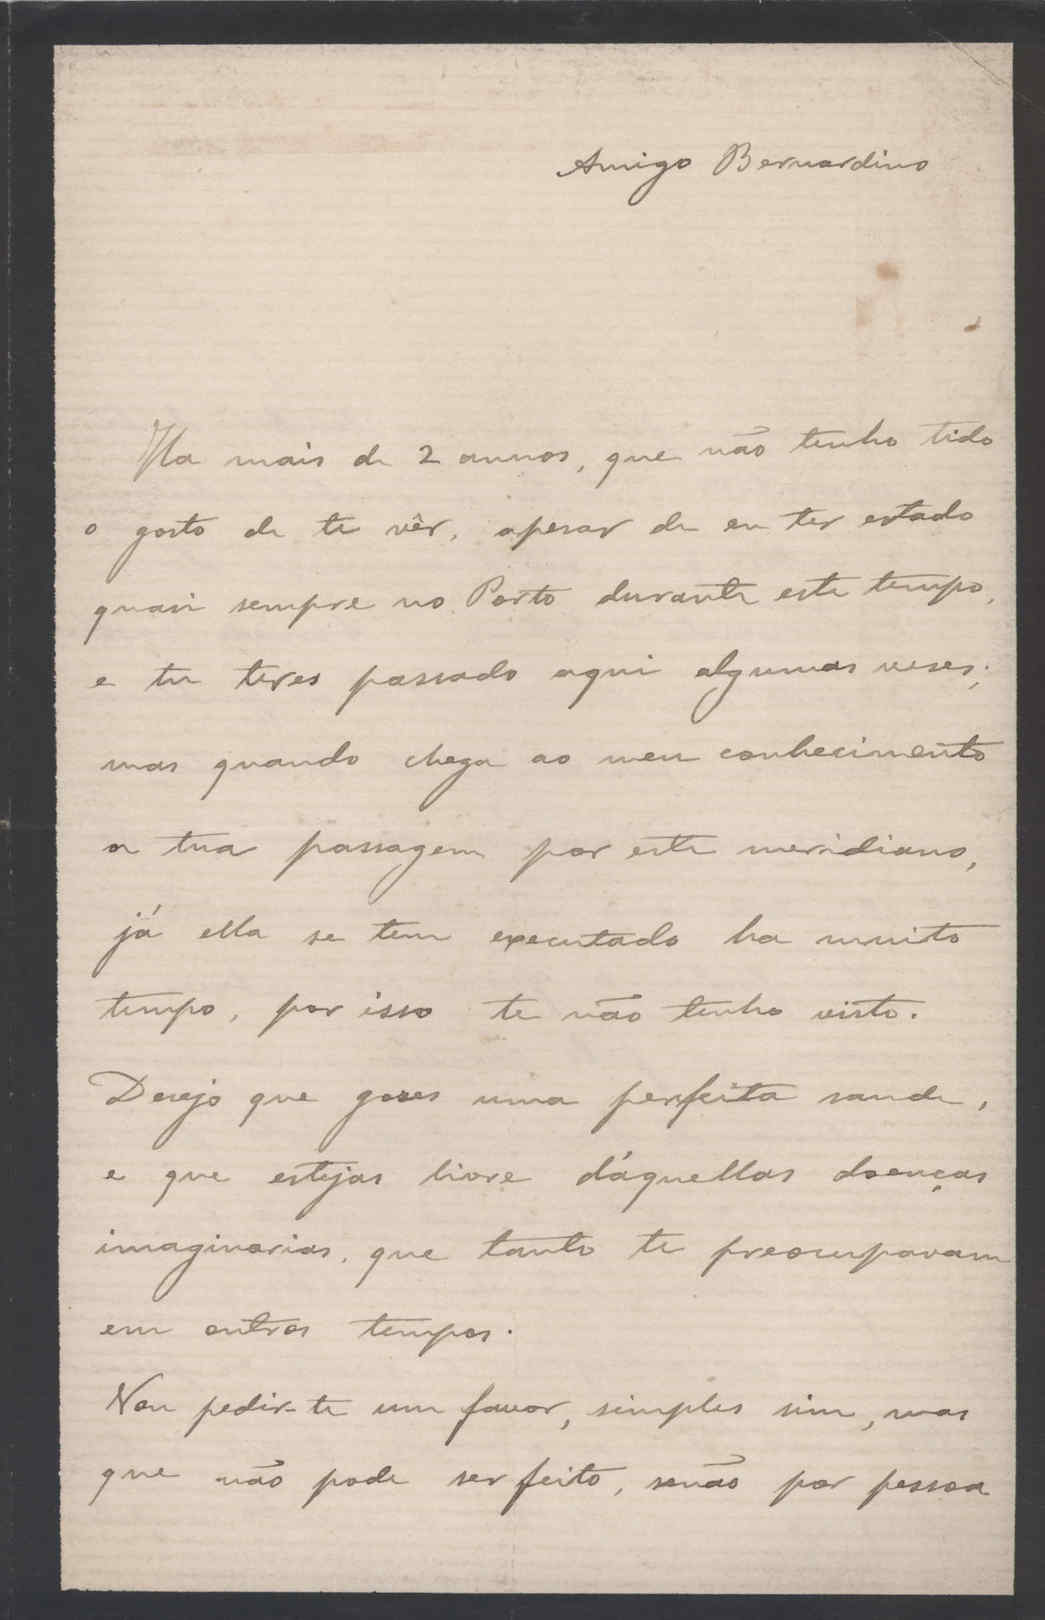 Amigo Bernardino
Ha mais de 2 annos, que não tenho tido
o gosto de te vêr, apesar de eu ter estado
quasi sempre no Porto durante este tempo,
e tu teres passado aqui algumas veses;
mas quando chega ao meu conhecimento
a tua passagem por este meridiano,
já ella se tem executado ha muito
tempo, por isso te não tenho visto.
Desejo que goses uma perfeita saude,
e que estejas livre d'áquellas doenças
imaginarias, que tanto te preocupavam
em outros tempos.
Vou pedir-te um favor, simples sim, mas
que não pode ser feito, senão por pessoa